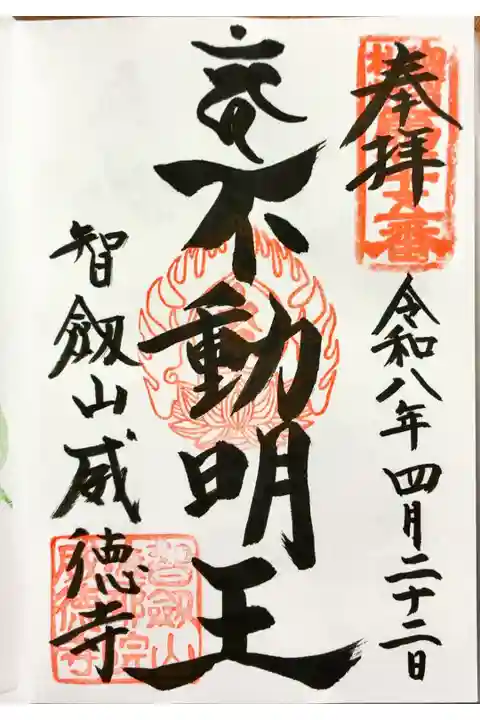 奉拝
令和八年四月二十二日
不動明王
智劔山威徳寺
智劔山
威徳寺